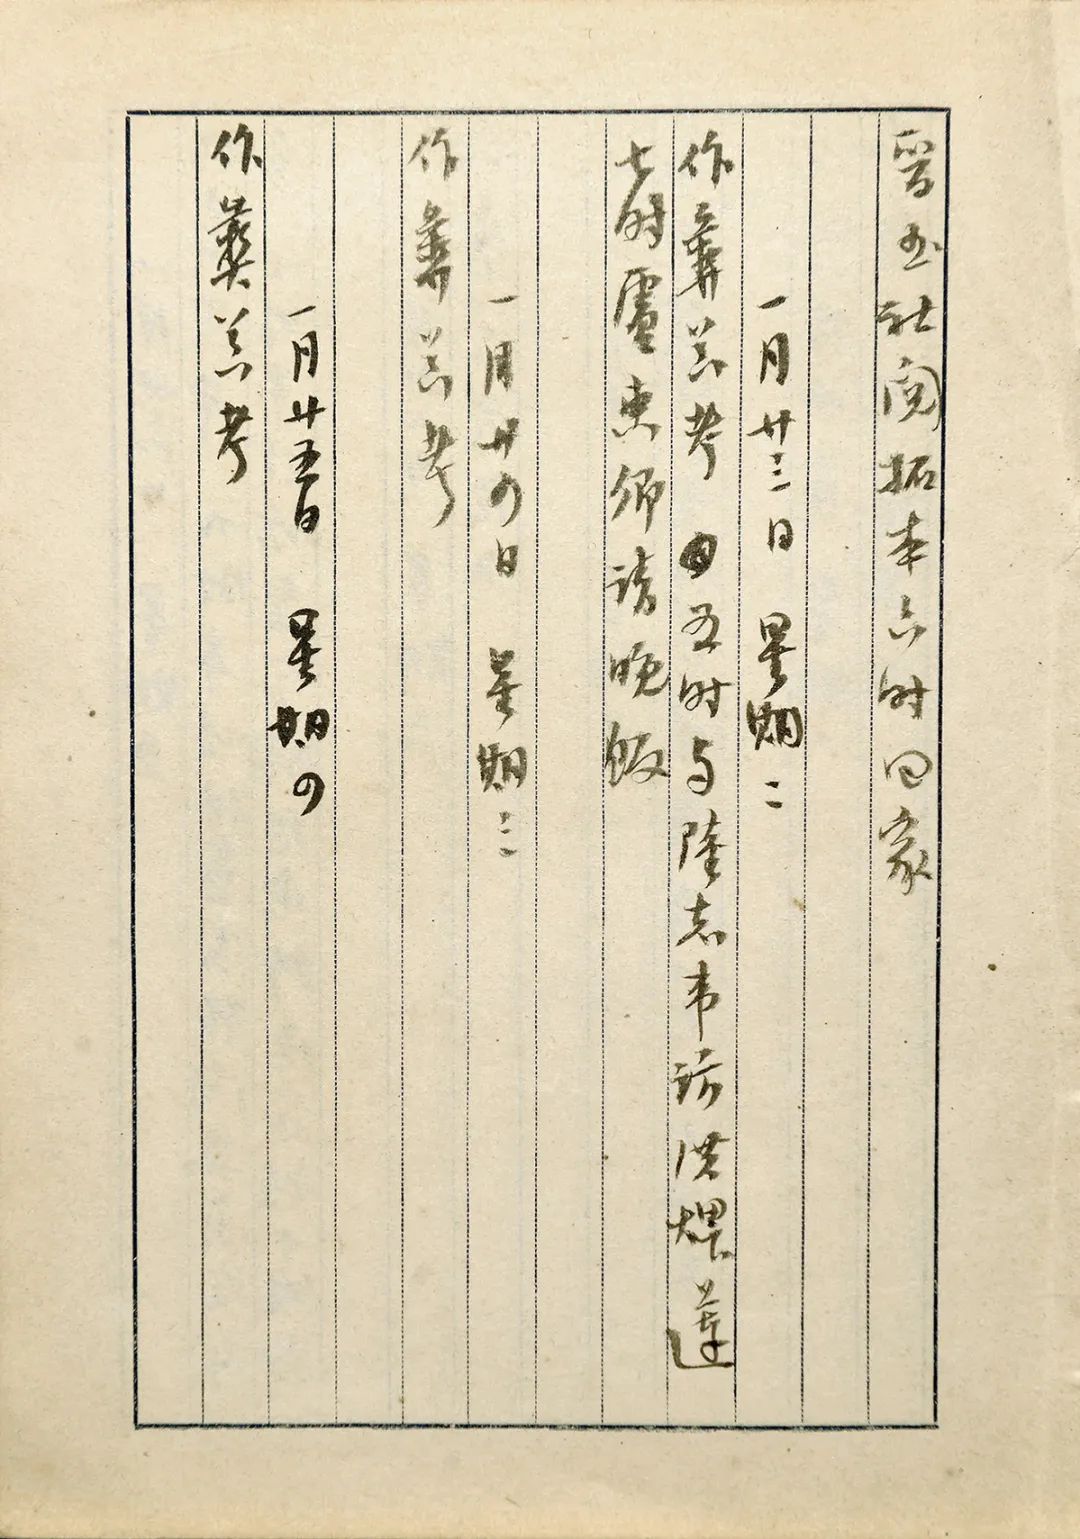 社閱拓本六时回家
一月廿三日 星期二
作彝器考 五时与陸志韋訪洪煨蓮
七时盧惠卿請晚飯
一月廿四日 星期三
作彝器考
一月廿五日 星期四
作彝器考